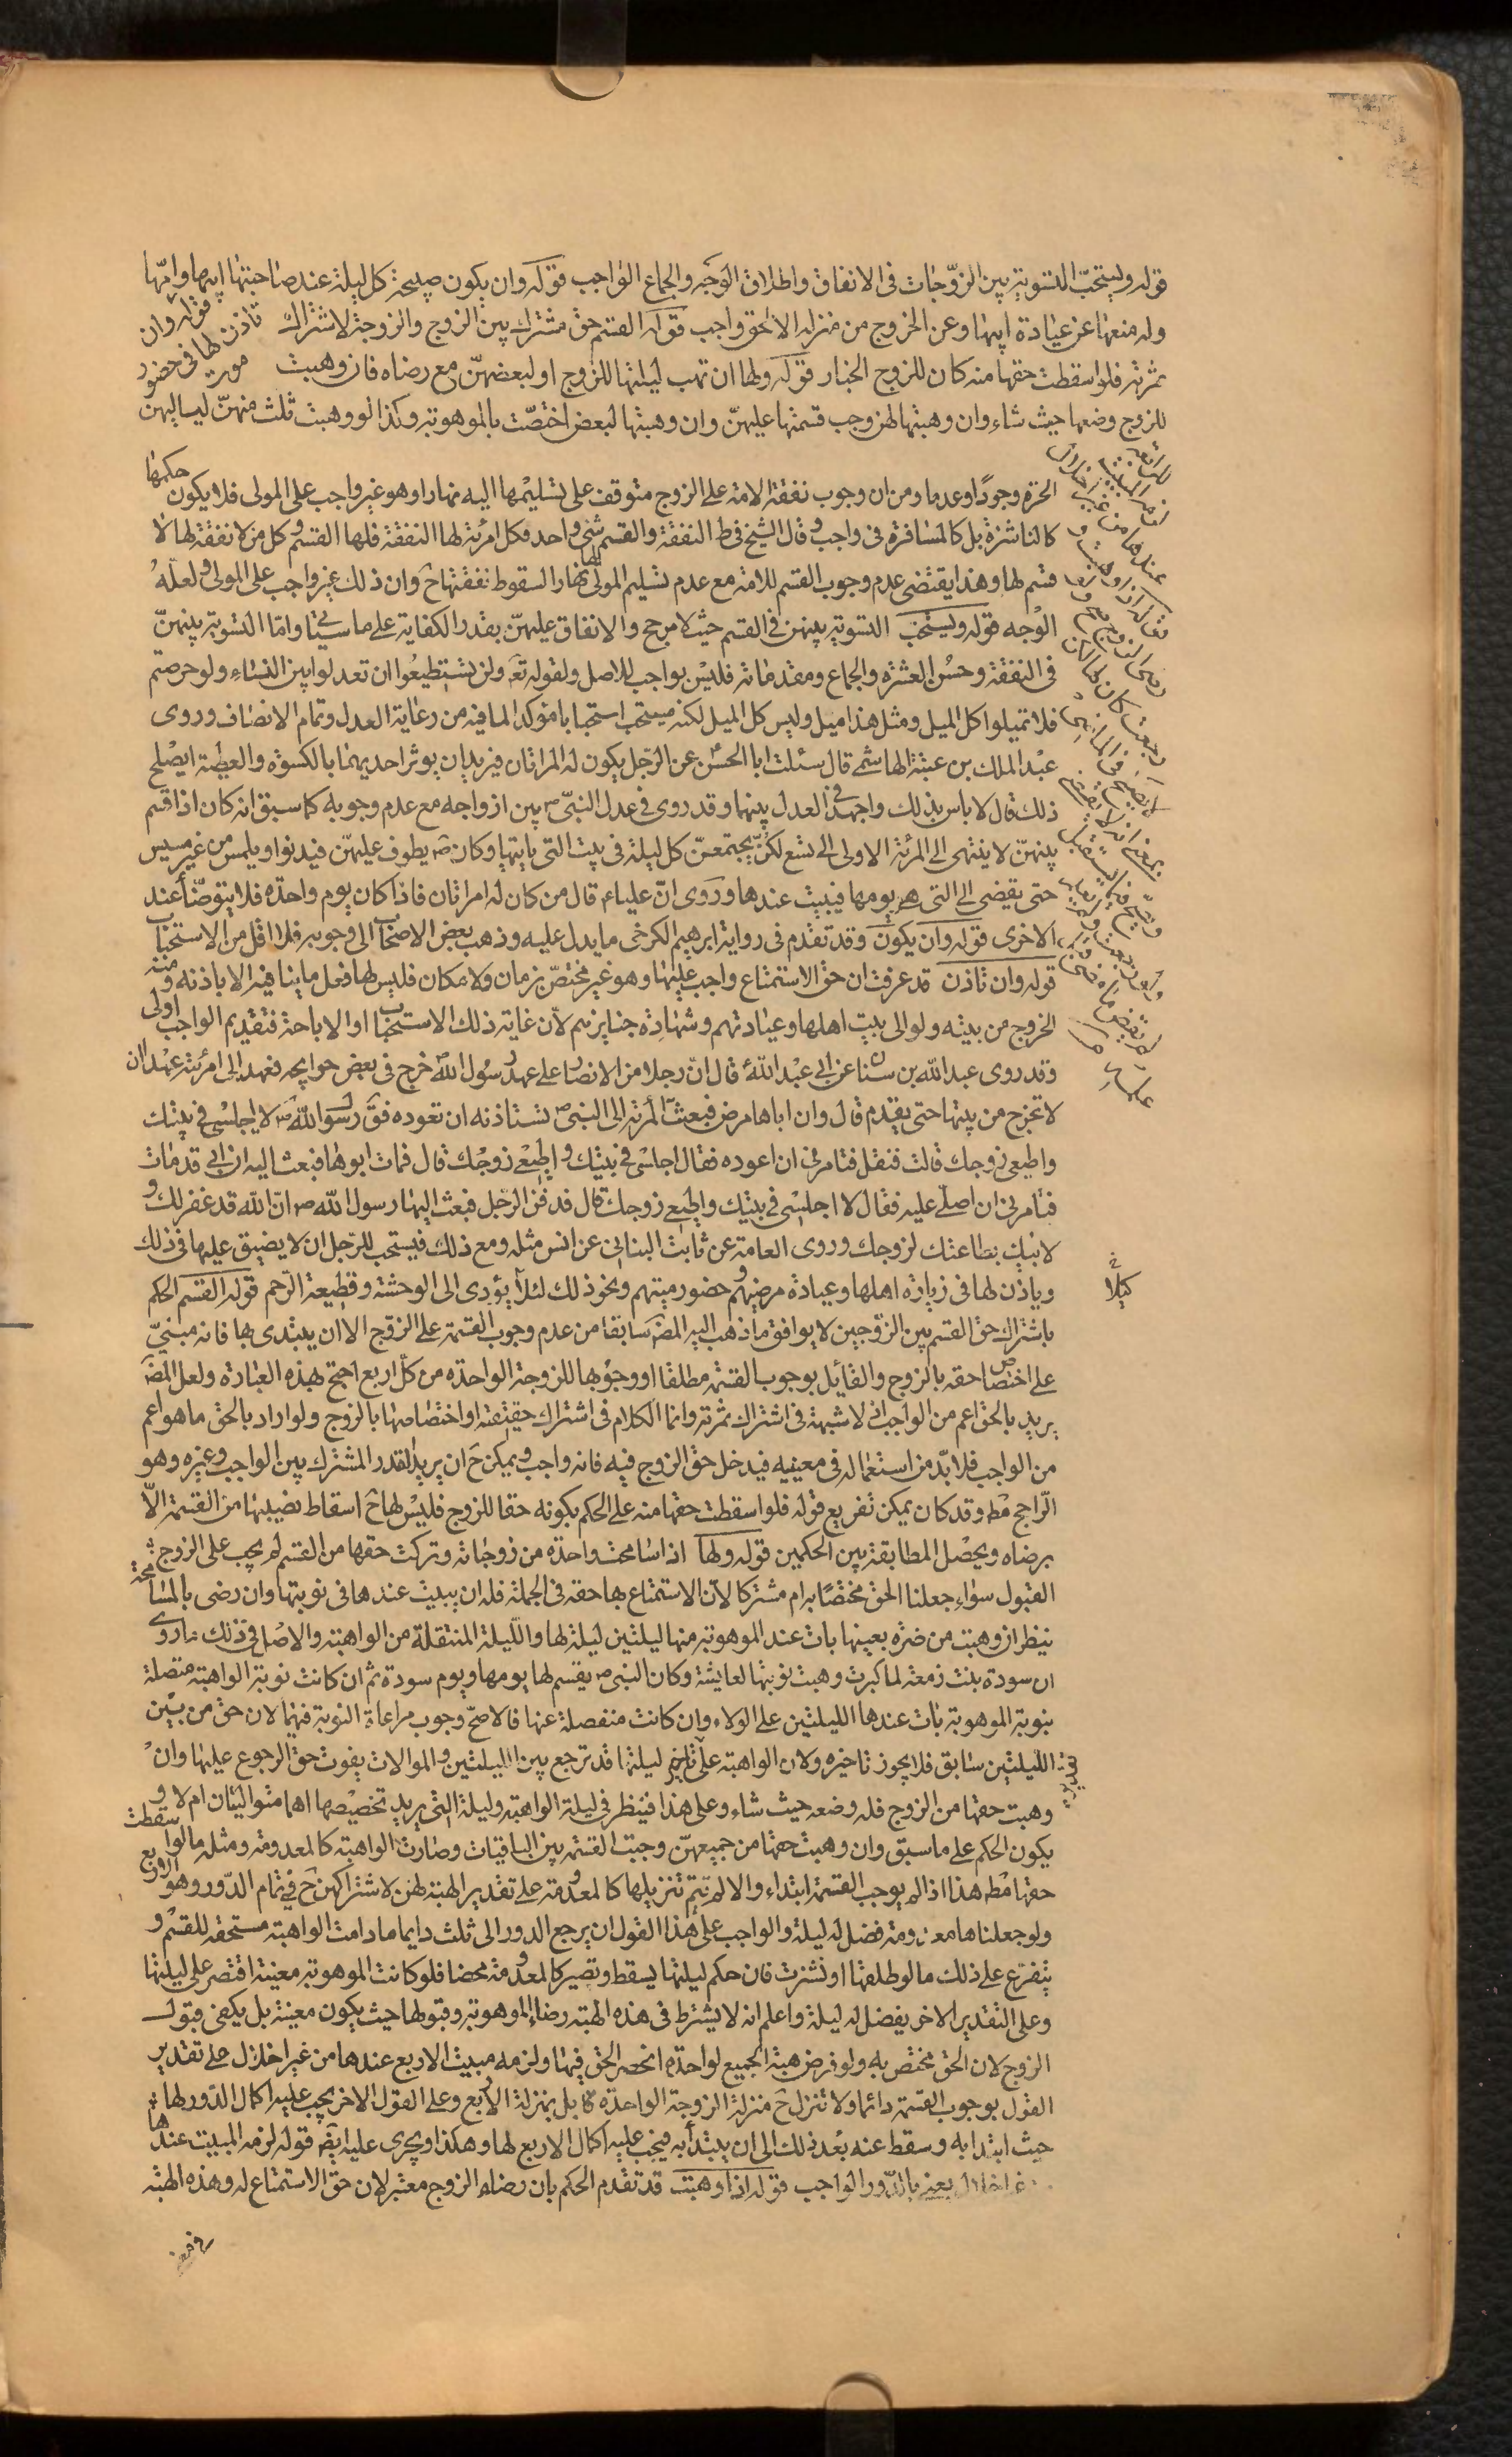 قوله ويستحبّ التسوية بين الزوجات فى الانفاق واطلاق الوجه والجماع الواجب قوله وان يكون صبيحة كل ليلة عند صاحبتها
وله منعها عن عيادة ابيها وعن الخروج من منزله الا لحق واجب قوله القسم حق مشترك بين الزوج والزوجة لاشتراك
ثمرته فلو اسقطت حقها منه كان للزوج الخيار قوله ولها ان تهب ليلتها للزوج او لبعضهنّ مع رضاه فان وهبت
للزوج وضعها حيث شاء وان وهبتها لهن وجب قسمتها عليهنّ وان وهبتها لبعض اختصّت بالموهوبة وكذا لو وهبت ثلث منهنّ لياليهن
الحرة وجودًا وعدما ومن ان وجوب نفقة الامة على الزوج متوقف على تسليمها اليه نهارا وهو غير واجب على المولى فلا يكون حكمها
كالناشزة بل كالمسافرة فى واجب وقال الشيخ فى ط النفقة والقسم شئ واحد فكل امرئة لها النفقة فلها القسم وكل من لا نفقة لها لا
قسم لها وهذا يقتضى عدم وجوب القسم للامة مع عدم تسليم المولى لها نهارا لسقوط نفقتها ح وان ذلك غير واجب على المولى ولعلّه
الوجه قوله ويستحب التسوية بينهن فى القسم حيث لا مرجح والانفاق عليهنّ بقدر الكفاية على ما سيأتى واما التسوية بينهنّ
فى النفقة وحسن العشرة والجماع ومقدماته فليس بواجب للاصل ولقوله تعه ولن تستطيعوا ان تعدلوا بين النساء ولو حرصتم
فلا تميلوا كل الميل ومثل هذا ميل وليس كل الميل لكنه يستحب استحبابا مؤكدا لما فيه من رعاية العدل وتمام الانصاف وروى
عبد الملك بن عتبة الهاشمى قال سئلت ابا الحسن عن الرجل يكون له المراتان فيريد ان يوثر احديهما بالكسوة والعطية ايصلح
ذلك قال لا باس بذلك واجهد فى العدل بينهما وقد روى فى عدل النبى ص بين ازواجه مع عدم وجوبه كما سبق انه كان اذا قسم
بينهنّ لا ينتهى الى المرئة الاولى الى تسع لكنّ يجتمعنّ كل ليلة فى بيت التى ياتيها وكان ص يطوف عليهنّ فيدنو او يلمس من غير مسيس
حتى يفضى الى التى هو يومها فيبيت عندها وروى انّ عليا ع قال من كان له امراتان فاذا كان يوم واحدة فلا يتوضّأ عند
الاخرى قوله وان يكون وقد تقدم فى رواية ابرهيم الكرخى ما يدل عليه وذهب بعض الاصحاب الى وجوبه فلا اقل من الاستحباب
قوله وان تاذن قد عرفت ان حق الاستمتاع واجب عليها وهو غير مختصّ بزمان ولا مكان فليس لها فعل ما ينافيه الا باذنه ومنه
الخروج من بيته ولو الى بيت اهلها وعيادتهم وشهادة جنايزهم لأن غاية ذلك الاستحباب او الاباحة فتقديم الواجب اولى
وقد روى عبد الله بن سنان عن ابى عبد الله قال انّ رجلا من الانصار على عهد رسول الله ص خرج فى بعض حوايجه فعهد الى امرئته عهدا ان
لا تخرج من بيتها حتى يقدم قال وان اباها مرض فبعثت المرئة الى النبى ص تستاذنه ان تعوده فق رسول الله ص لا اجلسى فى بيتك
واطيعى زوجك قالت فثقل فتامرنى ان اعوده فقال اجلسى فى بيتك واطيعى زوجك قال فمات ابوها فبعثت اليه ان ابى قد مات
فتامرنى ان اصلى عليه فقال لا اجلسى فى بيتك واطيعى زوجك قال فدفن الرجل فبعث اليها رسول الله ص انّ الله قد غفر لك و
لابيك بطاعتك لزوجك وروى العامة عن ثابت البنانى عن انس مثله ومع ذلك فيستحب للرّجل ان لا يضيق عليها فى ذلك
وياذن لها فى زيارة اهلها وعيادة مرضيهم وحضور ميتهم ونحو ذلك لئلا يؤدى الى الوحشة وقطيعة الرّحم قوله القسم الحكم
باشتراك حق القسم بين الزوجين لا يوافق ما ذهب اليه المصَ سابقا من عدم وجوب القسمة على الزوج الا ان يبتدى بها فانه مبنىّ
على اختصاص حقه بالزوج والقائل بوجوب القسمة مطلقا او وجوبها للزوجة الواحدة من كل اربع احتج بهذه العبادة ولعل المصَ
يريد بالحق اعم من الواجب اذ لا شبهة فى اشتراك ثمرته وانما الكلام فى اشتراك حقيقته او اختصاصها بالزوج ولو اراد بالحق ما هو اعم
من الواجب فلا بدّ من استعماله فى معنييه فيدخل حق الزوج فيه فانه واجب ويمكن ح ان يريد القدر المشترك بين الواجب وغيره وهو
الراجح مط وقد كان يمكن تفريع قوله فلو اسقطت حقها منه على الحكم بكونه حقا للزوج فليس لها ح اسقاط نصيبها من القسمة الّا
برضاه ويحصل المطابقة بين الحكمين قوله ولها اذا سامحت واحدة من زوجاته وتركت حقها من القسم لم يجب على الزوج
القبول سواء جعلنا الحق مختصًا به ام مشتركا لأن الاستمتاع بها حقه فى الجملة فله ان يبيت عندها فى نوبتها وان رضى بالمسامحة
نيظر ان وهبت من ضرة بعينها بات عند الموهوبة منها ليلتين ليلة لها والليلة المنتقلة من الواهبة والاصل فى ذلك ما روى
ان سودة بنت زمعة لما كبرت وهبت نوبتها لعايشة وكان النبى ص يقسم لها يومها ويوم سودة ثم ان كانت نوبة الواهبة متصلة
بنوبة الموهوبة بات عندها الليلتين على الولاء وان كانت منفصلة عنها فالاصحّ وجوب مراعاة النوبة فيهما لان حق من بين
الليلتين سابق فلا يجوز تاخيره ولان الواهبة على تاخير ليلتها قد ترجع بين الليلتين والموالات يفوت حق الرجوع عليها وان
وهبت حقها من الزوج فله وضعه حيث شاء وعلى هذا فينظر فى ليلة الواهبة وليلة التى يريد تخصيصها اهما متواليتان ام لا و
يكون الحكم على ما سبق وان وهبت حقها من جميعهنّ وجبت القسمة بين الباقيات وصارت الواهبة كالمعدومة ومثله ما لو اسقطت
حقها مط هذا اذا لم يوجب القسمة ابتداء والا لم يتم تنزيلها كالمعدومة على تقدير الهبة لهن لاشتراكهن ح فى تمام الدّور وهو الاربع
ولو جعلناها معدومة فضل له ليلة والواجب على هذا القول ان يرجع الدور الى ثلث دايما ما دامت الواهبة مستحقة للقسم و
يتفرع على ذلك ما لو طلقها او نشزت فان حكم ليلتها يسقط وتصير كالمعدومة محضا فلو كانت الموهوبة معينة اقتصر على ليلتها
وعلى التقدير الاخر يفضل له ليلة واعلم انه لا يشترط فى هذه الهبة رضاء الموهوبة وقبولها حيث يكون معينة بل يكفى قبول
الزوج لان الحق مختص به ولو فرض هبة الجميع لواحدة انحصر الحق فيها ولزمه مبيت الاربع عندها من غير اخلال على تقدير
القول بوجوب القسمة دائما ولا تنزل ح منزلة الزوجة الواحدة بل بمنزلة الاربع وعلى القول الاخر يجب عليه اكمال الدّور لها
حيث ابتدا به وسقط عنه بعد ذلك الى ان يبتدأ به فيجب عليه اكمال الاربع لها وهكذا ويجرى عليه ايضَ قوله لزمه المبيت عندها
اخلال يعنى بالدّور الواجب قوله اذا وهبت قد تقدم الحكم بان رضاء الزوج معتبر لان حق الاستمتاع له وهذه الهبة